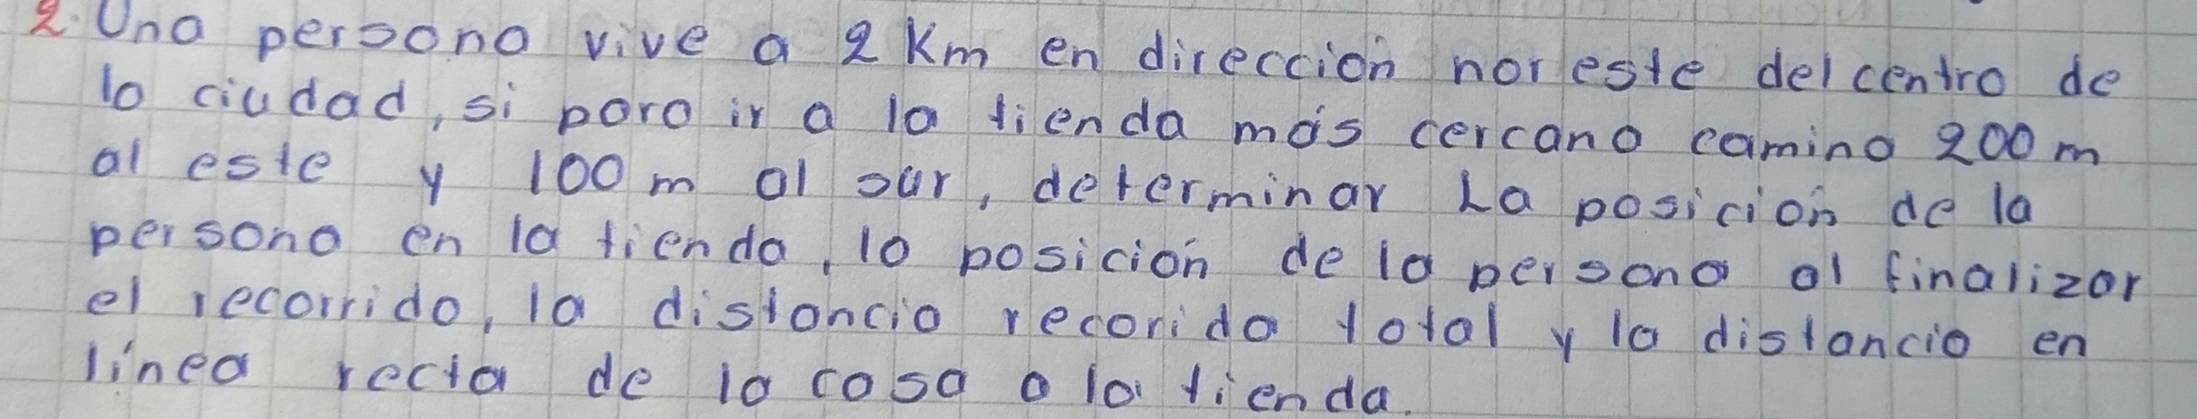 2. Una persona vive a 2 Km en dirección noreste del centro de
la ciudad, si para ir a la tienda más cercana camina 200 m
al este y 100 m al sur, determinar La posición de la
persona en la tienda, la posición de la persona al finalizar
el recorrido, la distancia recorida total y la distancia en
línea recta de la casa a la tienda.